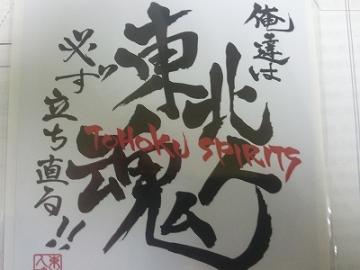 俺達は
東北
魂
TOHOKU SPIRITS
必ず立ち直る!!